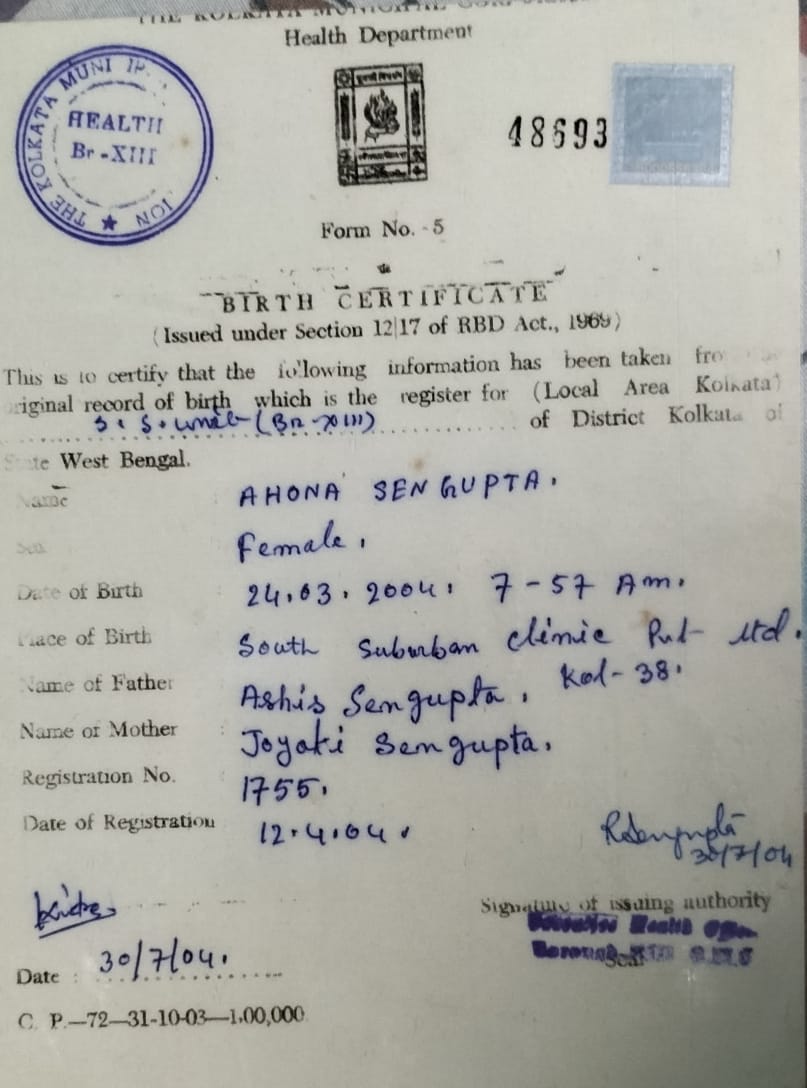 THE KOLKATA MUNICIPAL
Health Department
THE KOLKATA MUNI IP
ION
HEALTH
Br-XIII
48693
Form No. - 5
BIRTH CERTIFICATE
(Issued under Section 12|17 of RBD Act., 1969)
This is to certify that the following information has been taken fro
original record of birth which is the register for (Local Area Kolkata)
S. S. Unit (Br-XIII) of District Kolkata of
State West Bengal.
Name AHONA SENGUPTA.
Sex Female.
Date of Birth : 24.03.2004. 7-57 Am.
Place of Birth South Suburban Clinic Pvt Ltd.
Kol-38.
Name of Father Ashis Sengupta.
Name of Mother : Joyoti Sengupta.
Registration No. 1755.
Date of Registration 12.4.04.
30/7/04
Signature of issuing authority
Executive Health
Borough XIII
Seal
Date : 30/7/04.
C. P.—72—31-10-03—1,00,000